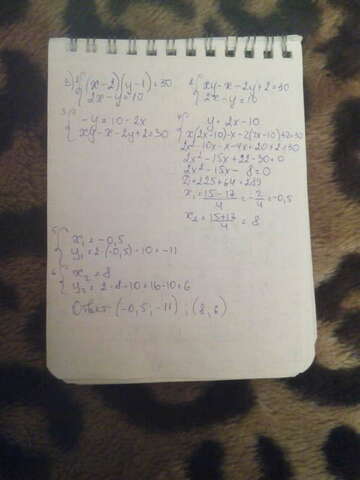 б) 1) { (x-2)(y-1)=30
2x-y=10
2) { xy-x-2y+2=30
2x-y=10
3) { -y=10-2x
xy-x-2y+2=30
4) { y=2x-10
x(2x-10)-x-2(2x-10)+2=30
2x²-10x-x-4x+20+2=30
2x²-15x+22-30=0
2x²-15x-8=0
D=225+64=289
x₁=15-17/4=-2/4=-0,5
x₂=15+17/4=8
5) { x₁=-0,5
y₁=2·(-0,5)-10=-11
6) { x₂=8
y₂=2·8-10=16-10=6
Ответ: (-0,5; -11); (8; 6)